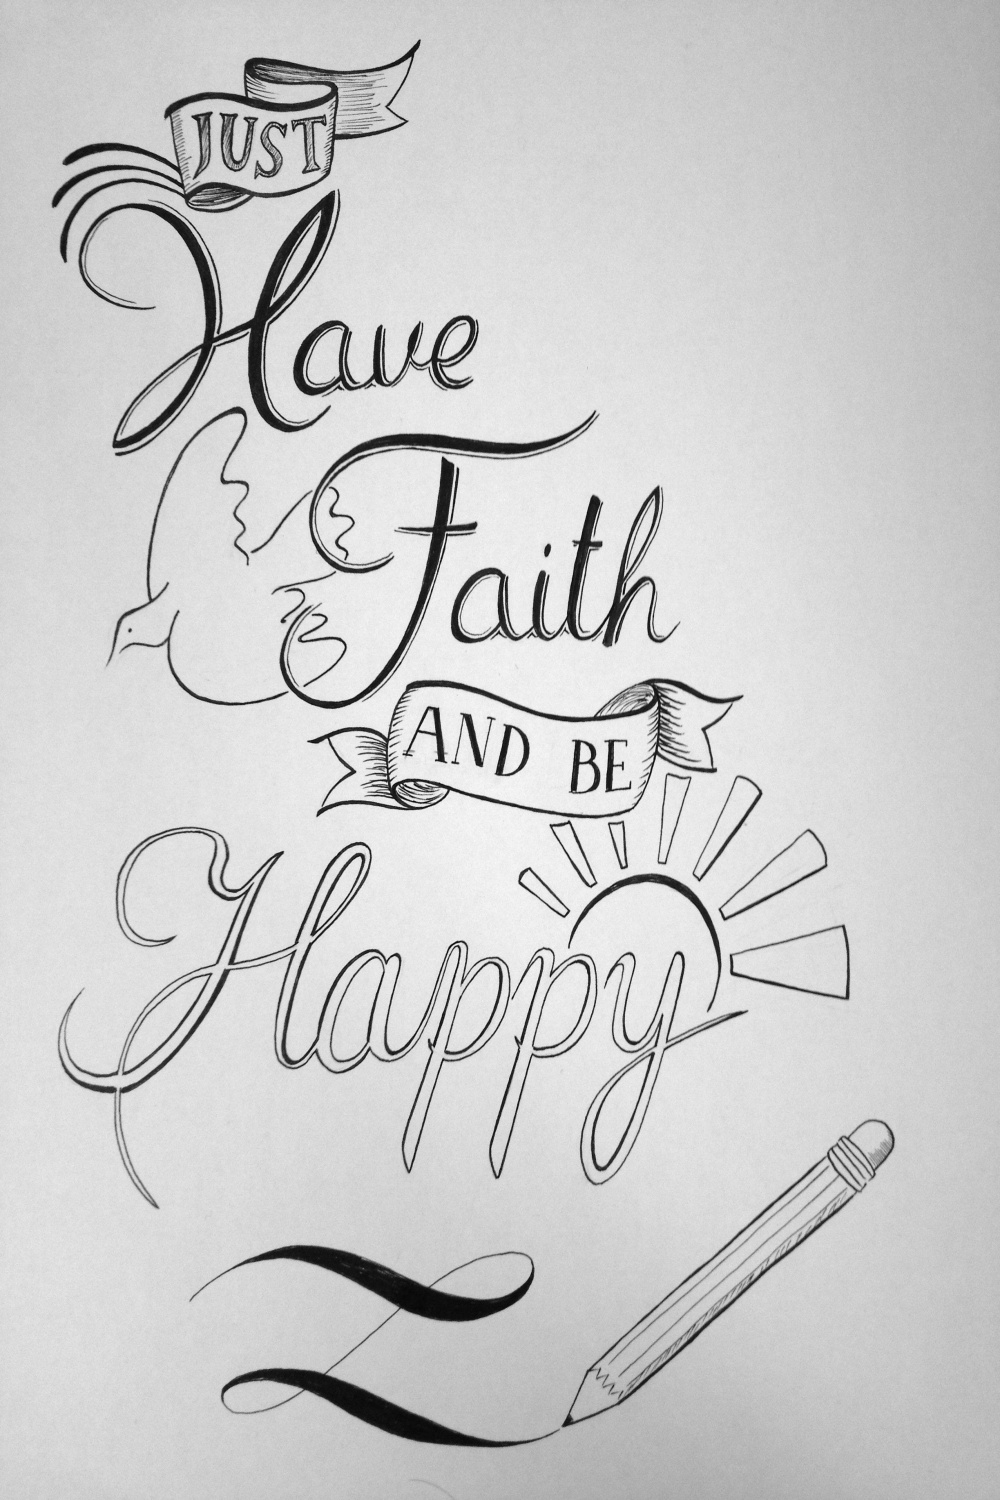 JUST
Have
Faith
AND BE
Happy